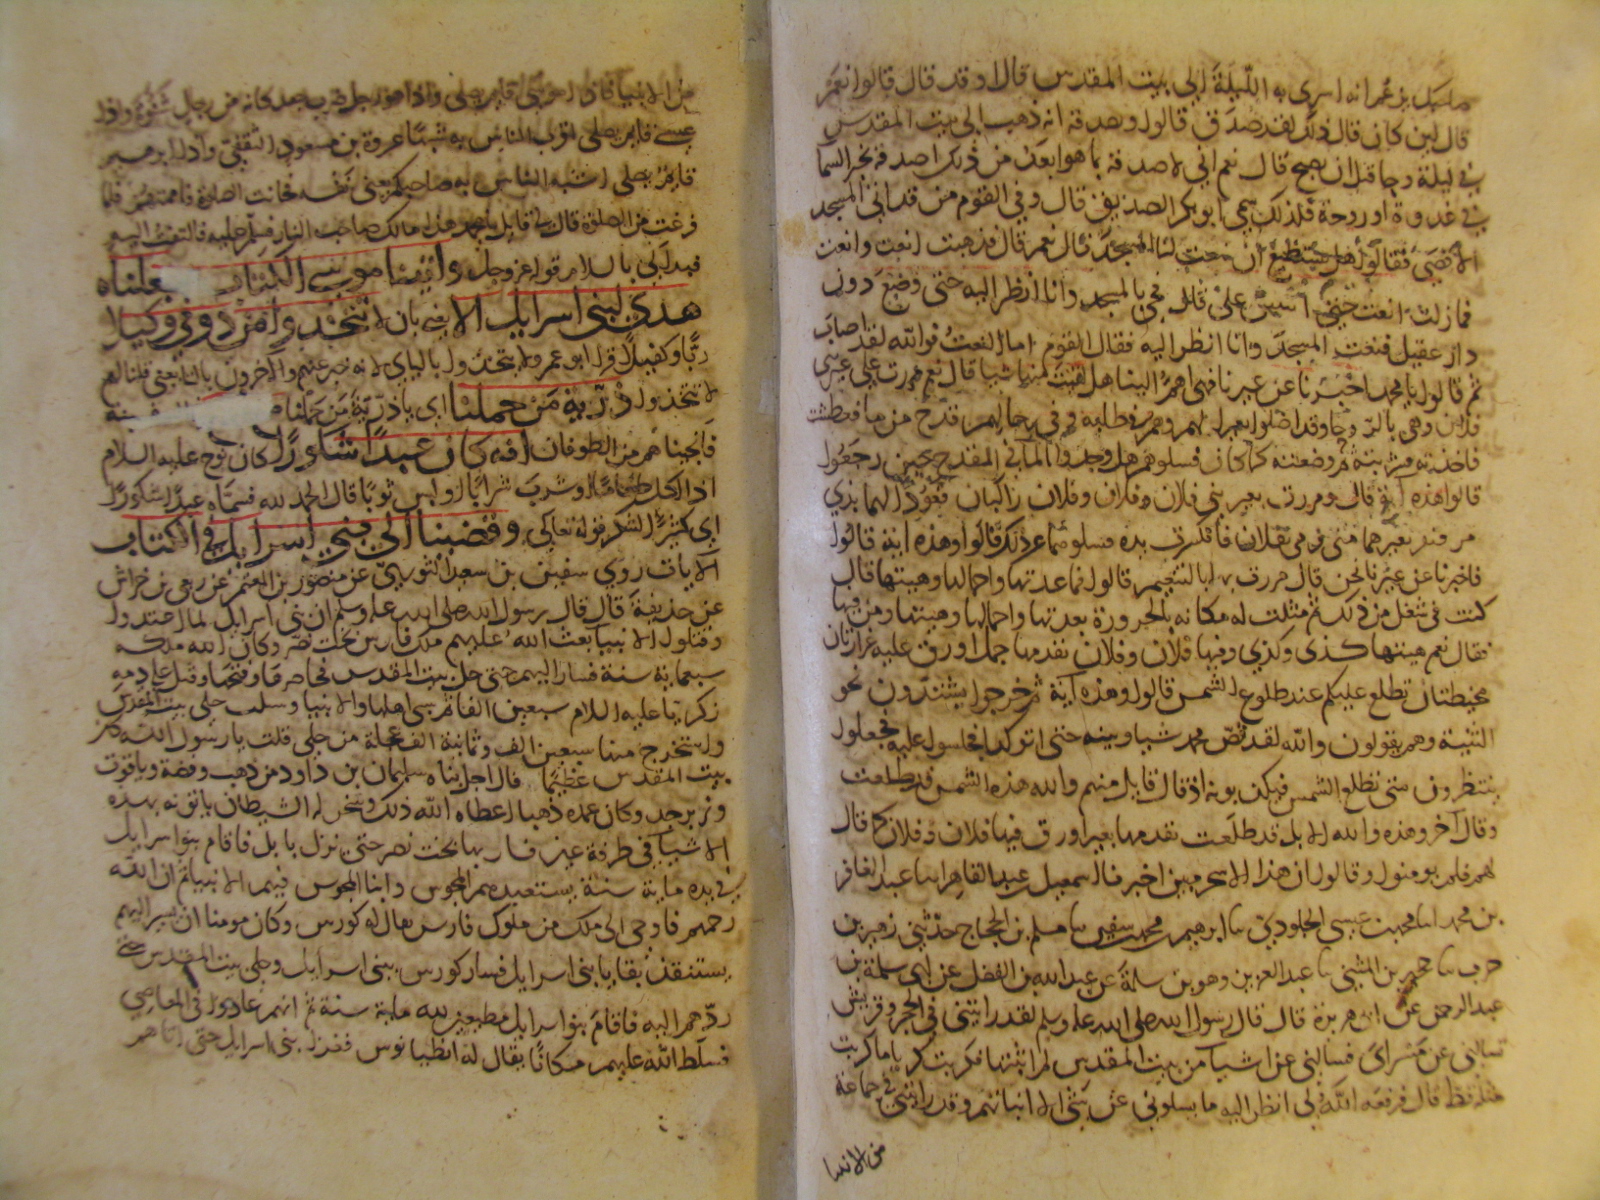 يزعم انه اسري به الليلة الى بيت المقدس قال اوقد قال قالوا نعم
قال لين كان قال ذلك لقد صدق قالوا وتصدقه انه ذهب الى بيت المقدس
في ليلة وجا قبل ان يصبح قال نعم اني لاصدقه بما هو ابعد من ذلك اصدقه بخبر السما
في غدوة او روحة فلذلك سمي ابو بكر الصديق قال وفي القوم من قد اتى المسجد
الاقصى فقالوا هل تستطيع ان تنعت لنا المسجد قال نعم قال فذهبت انعت وانعت
فما زلت انعت حتى التبس علي قال فجي بالمسجد وانا انظر اليه حتى وضع دون
دار عقيل فنعت المسجد وانا انظر اليه فقال القوم اما النعت فوالله لقد اصاب
ثم قالوا يا محمد اخبرنا عن عيرنا فهي اهم الينا هل لقيت منها شيا قال نعم مررت على عير بني
فلان وهي بالروحا وقد اضلوا بعيرا لهم وهم في طلبه وفي رحالهم قدح من ما فعطشت
فاخذته فشربته ثم وضعته كما كان فسلوهم هل وجدوا الما في القدح حين رجعوا
قالوا هذه آية قال ومررت بعير بني فلان وفلان وفلان راكبان قعودا لهما بذي
مر فنفر بعيرهما مني فرمى بفلان فانكسرت يده فسلوهما عن ذلك قالوا وهذه اية قالوا
فاخبرنا عن عيرنا نحن قال مررت بها بالتنعيم قالوا فما عدتها واحمالها وهيئتها قال
كنت في شغل من ذلك ثم مثلت له مكانه بالحزورة بعدتها واحمالها وهيئتها ومن فيها
فقال نعم هيئتها كذى وكذى وفيها فلان وفلان تقدمها جمل اورق عليه غرارتان
مخيطتان تطلع عليكم عند طلوع الشمس قالوا وهذه آية ثم خرجوا يشتدون نحو
الثنية وهم يقولون والله لقد قص محمد شيا وبينه حتى اتو كدا فجلسوا عليه فجعلوا
ينتظرون متى تطلع الشمس فيكذبونه اذ قال قايل منهم والله هذه الشمس قد طلعت
وقال آخر وهذه والله الابل قد طلعت يقدمها بعير اورق فيها فلان وفلان كما قال
لهم فلم يومنوا وقالوا ان هذا الا سحر مبين اخبرنا اسمعيل بن عبد القاهر انا عبد الغافر
بن محمد انا محمد بن عيسى الجلودي نا ابرهيم بن محمد بن سفين نا مسلم بن الحجاج حدثني زهير بن
حرب نا حجين بن المثنى نا عبد العزيز وهو بن سلمة عن عبد الله بن الفضل عن ابي سلمة بن
عبد الرحمن عن ابي هريرة قال قال رسول الله صلى الله عليه وسلم لقد رايتني في الحجر وقريش
تسالني عن مسراي فسالتني عن اشيا من بيت المقدس لم اثبتها فكربت كربا ما كربت
مثله قط قال فرفعه الله لي انظر اليه ما يسلوني عن شي الا انباتهم وقد رايتني في جماعة
من الانبيا
من الانبيا فاذا موسى قايم يصلي واذا هو رجل ضرب جعد كانه من رجال شنوءة واذا
عيسى قايم يصلي اقرب الناس به شبها عروة بن مسعود الثقفي واذا ابرهيم
قايم يصلي اشبه الناس به صاحبكم يعني نفسه فحانت الصلوة فاممتهم فلما
فرغت من الصلوة قال لي قايل يا محمد هذا مالك صاحب النار فسلم عليه فالتفت اليه
فبداني بالسلام قوله عز وجل وآتينا موسى الكتاب وجعلناه
هدى لبني اسرايل الا يعني بان لا تتخذوا من دوني وكيلا
ربا وكفيلا قرا ابو عمرو ولا يتخذوا بالياي لانه خبر عنهم والآخرون بالتا يعني قلنا لهم
لا تتخذوا ذرية من حملنا اي يا ذرية من حملنا
فانجيناهم من الطوفان انه كان عبدا شكورا كان نوح عليه السلام
اذا اكل طعاما او شرب شرابا او لبس ثوبا قال الحمد لله فسماه عبدا شكورا
اي كثير الشكر قوله تعالى وقضينا الى بني اسرايل في الكتاب
الايات روى سفين بن سعيد الثوري عن منصور بن المعتمر عن ربعي بن خراش
عن حذيفة قال قال رسول الله صلى الله عليه وسلم ان بني اسرايل لما اعتدوا
وقتلوا الانبيا بعث الله عليهم ملك فارس بخت نصر وكان الله ملكه
سبعماية سنة فسار اليهم حتى حل بيت المقدس فحاصرها وفتحها وقتل على دم
زكريا عليه السلام سبعين الفا ثم سبى اهلها والانبيا وسلب حلي بيت المقدس
واستخرج منها سبعين الف وثمانية الف عجلة من حلي قلت يا رسول الله كان
بيت المقدس عظيما قال اجل بناه سليمان بن داود من ذهب وفضة وياقوت
وزبرجد وكان عمده ذهبا اعطاه الله ذلك وسخر له الشياطين ياتونه بهذه
الاشيا في طرفة عين فسار بها بخت نصر حتى نزل بابل فاقام بنو اسرايل
في يده ماية سنة يستعبدهم المجوس وابنا المجوس فيهم الانبيا ثم ان الله
رحمهم فاوحى الى ملك من ملوك فارس يقال له كورس وكان مومنا ان يسير اليهم
يستنقذ بقايا بني اسرايل فسار كورس ببني اسرايل وحلي بيت المقدس حتى
ردهم اليه فاقام بنو اسرايل مطيعين لله ماية سنة ثم انهم عادوا في المعاصي
فسلط الله عليهم ملكا يقال له انطيانوس فغزا بني اسرايل حتى اتاهم